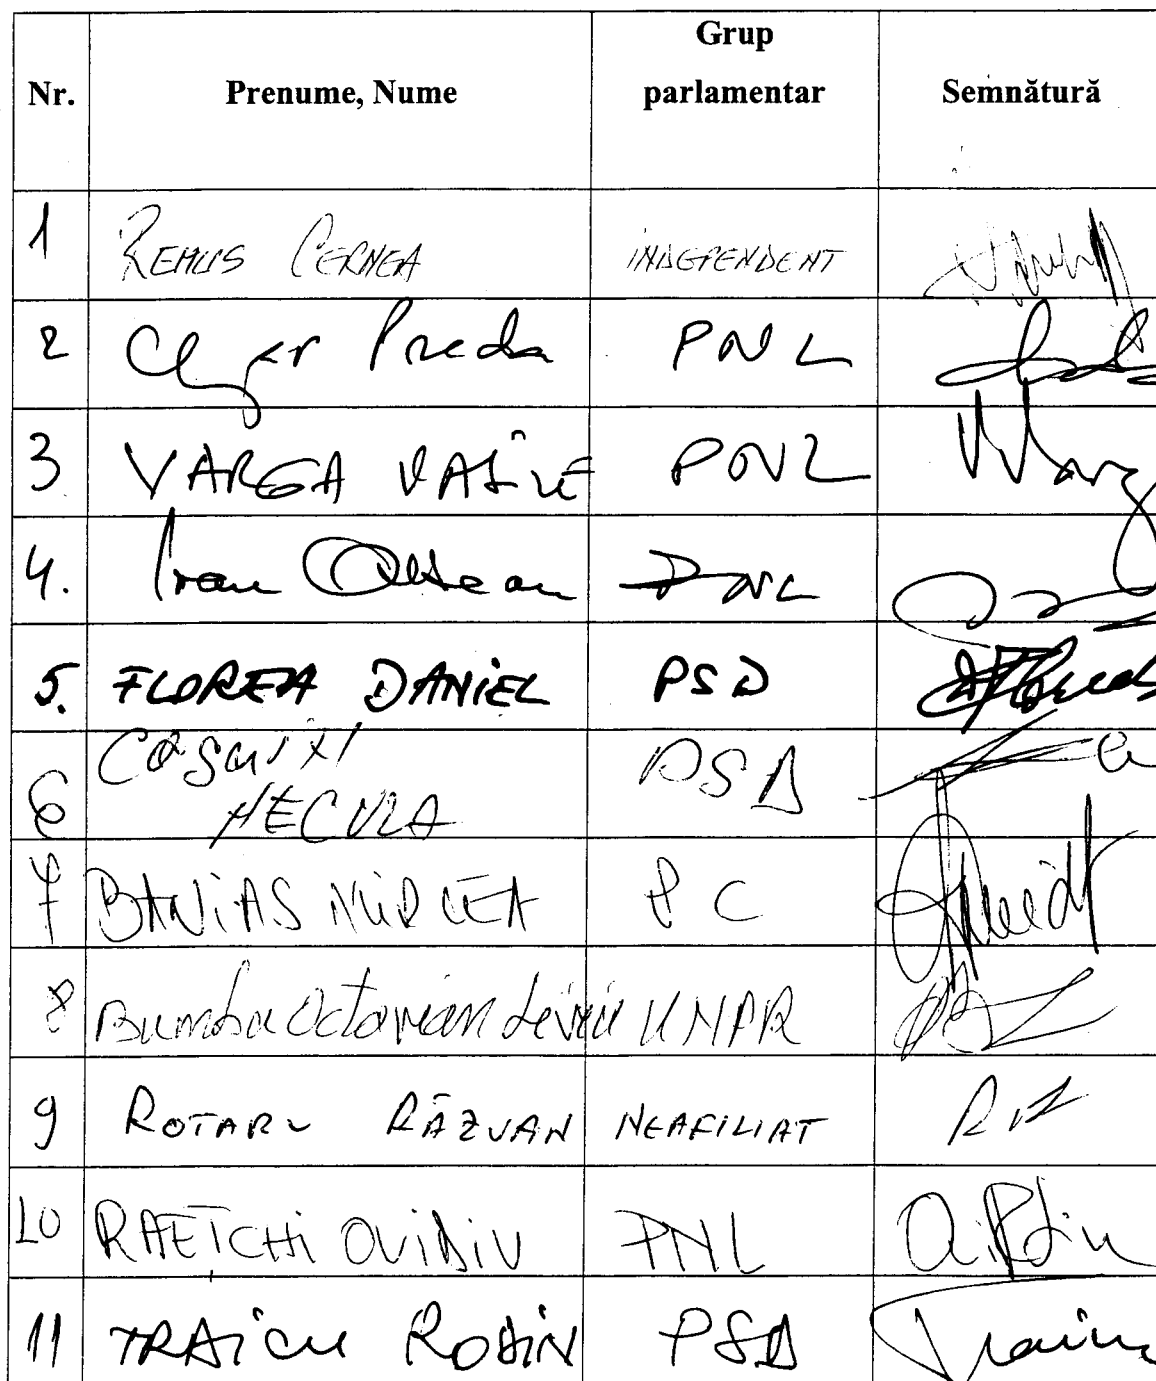 Nr. Prenume, Nume Grup parlamentar Semnătură
1 REMUS CERNEA INDEPENDENT
2 Cezar Preda PNL
3 VARGA VASILE PNL
4. Ioan Oltean PNL
5. FLOREA DANIEL PSD
6 COSMIN NECULA PSD
7 BANIAS MIRCEA PC
8 Bumbu Octavian Liviu UNPR
9 ROTARU RĂZVAN NEAFILIAT
10 RAETCHI OVIDIU PNL
11 TRAICU ROBIN PSD